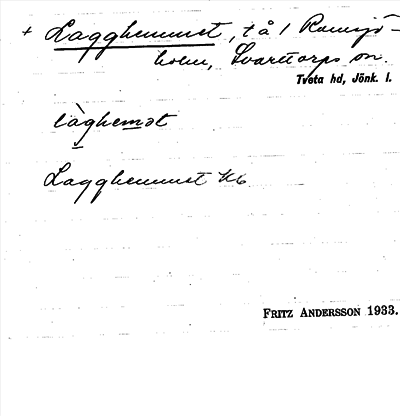 + Lagghemmet, t å 1 Ramsjö-
holm, Svarttorps sn.
Tveta hd, Jönk. l.
làghemət
Lagghemmet
FRITZ ANDERSSON 1933.